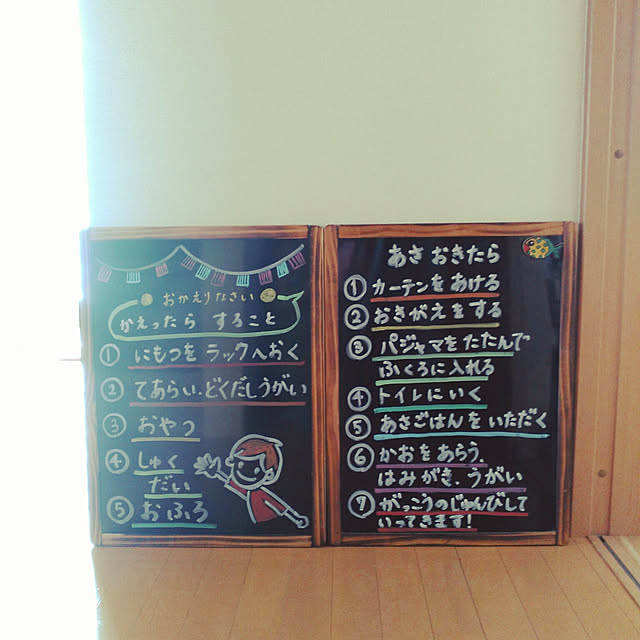 おかえりなさい
かえったら すること
① にもつを ラックへおく
② てあらい.どくだしうがい
③ おやつ
④ しゅく
だい
⑤ おふろ
あさ おきたら
① カーテンを あける
② おきがえをする
③ パジャマを たたんで
ふくろに入れる
④ トイレにいく
⑤ あさごはんを いただく
⑥ かおを あらう.
はみがき.うがい
⑦ がっこうのじゅんびして
いってきます!